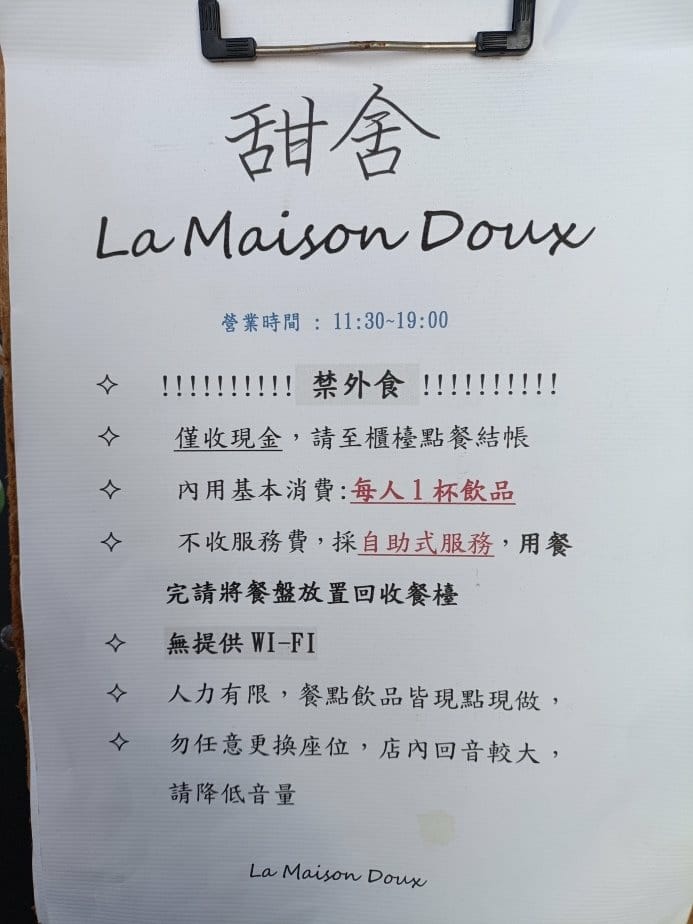 甜舍
La Maison Doux
營業時間 : 11:30~19:00
✧ !!!!!!!!!! 禁外食 !!!!!!!!!!
✧ 僅收現金，請至櫃檯點餐結帳
✧ 內用基本消費:每人1杯飲品
✧ 不收服務費，採自助式服務，用餐
完請將餐盤放置回收餐檯
✧ 無提供 WI-FI
✧ 人力有限，餐點飲品皆現點現做，
✧ 勿任意更換座位，店內回音較大，
請降低音量
La Maison Doux